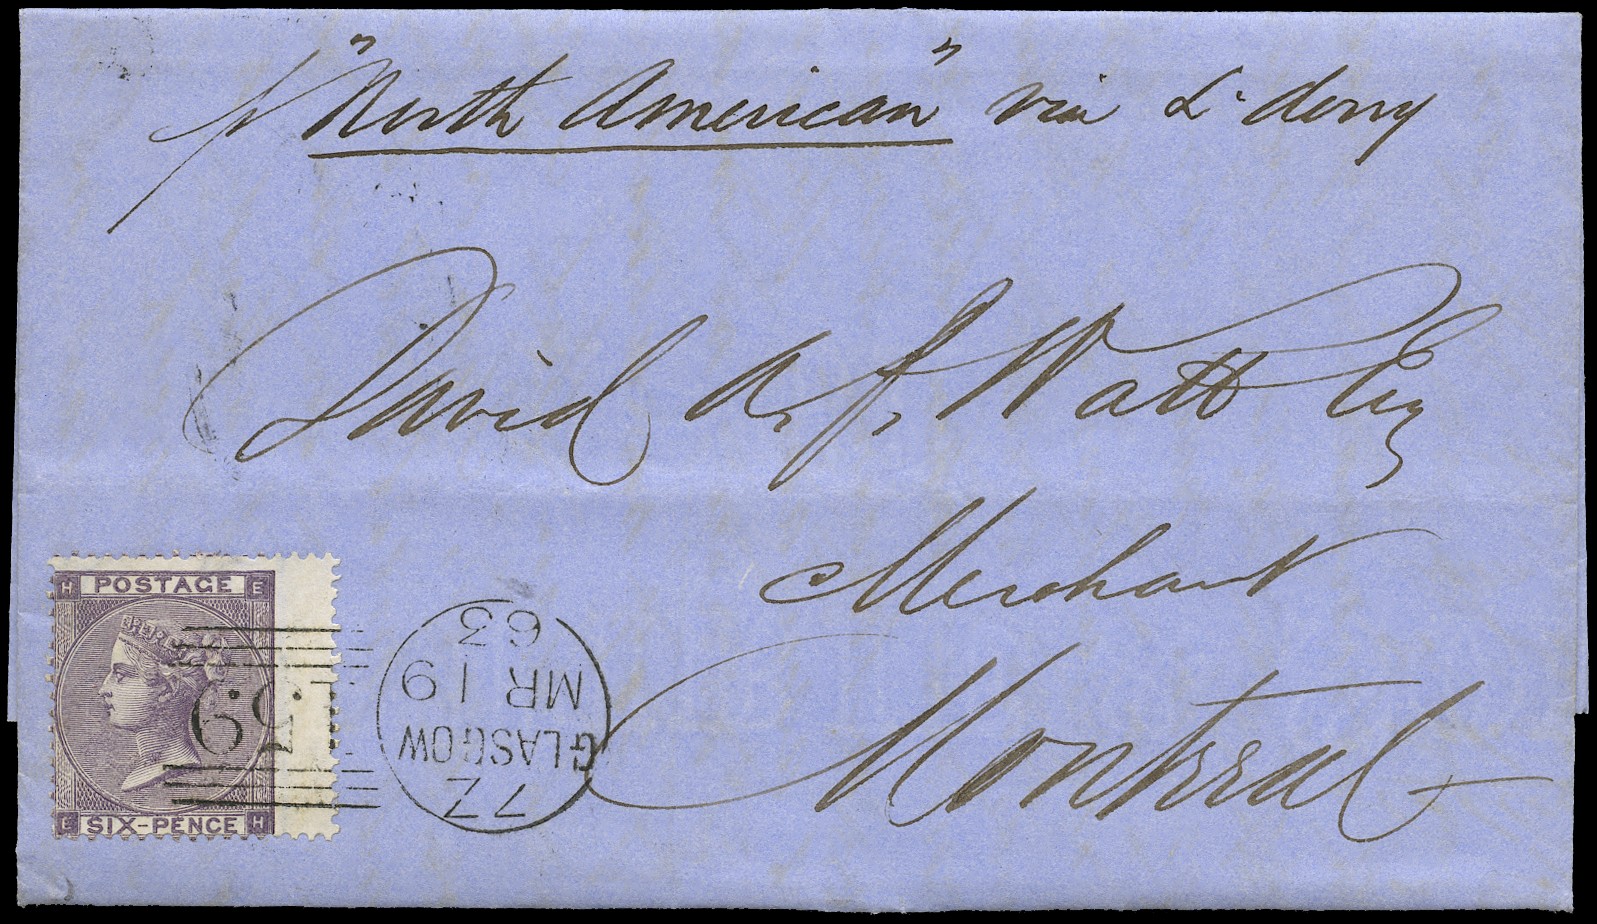 p/ "North American" via L. derry
David A. P. Watt Esq
Merchant
Montreal
H POSTAGE E
E SIX-PENCE H
159
GLASGOW
MR 19
63